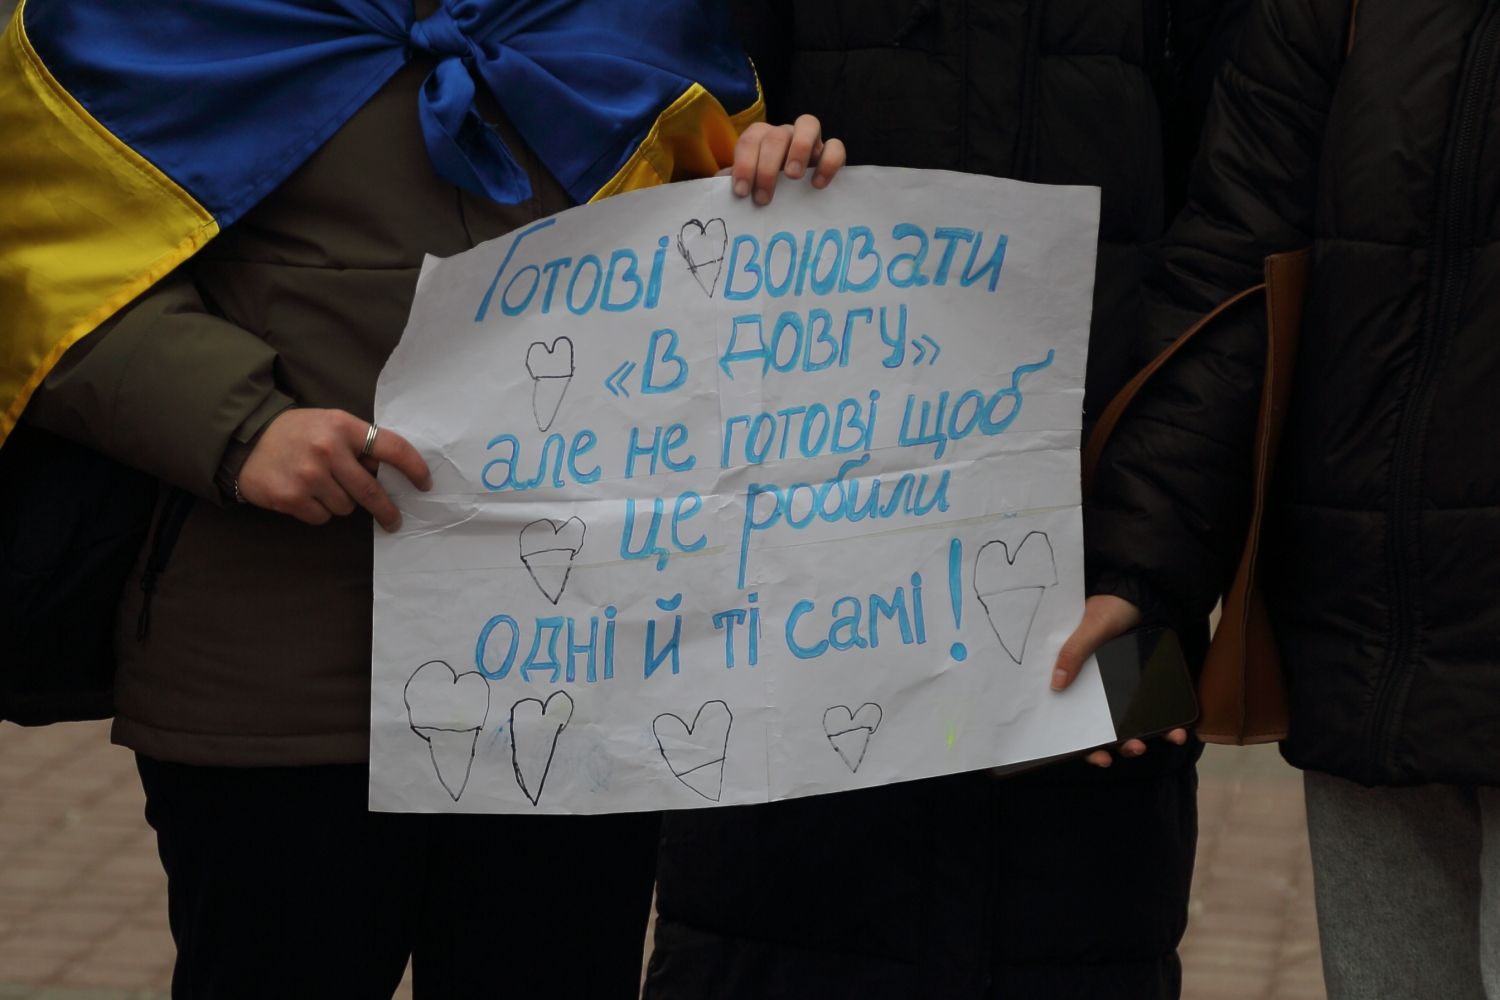 Готові воювати
«в довгу»
але не готові щоб
це робили
одні й ті самі!